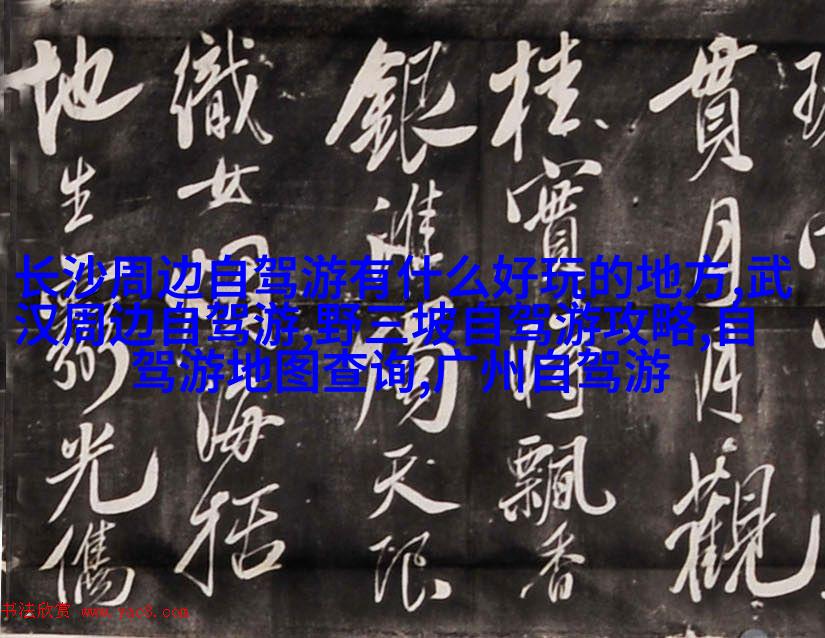 貫月月觀
桂實時飄香
銀淮周天限
織女海括
地生光儁
长沙周边自驾游有什么好玩的地方,武
汉周边自驾游,野三坡自驾游攻略,自
驾游地图查询,广州自驾游
书法欣赏 www.yac8.com